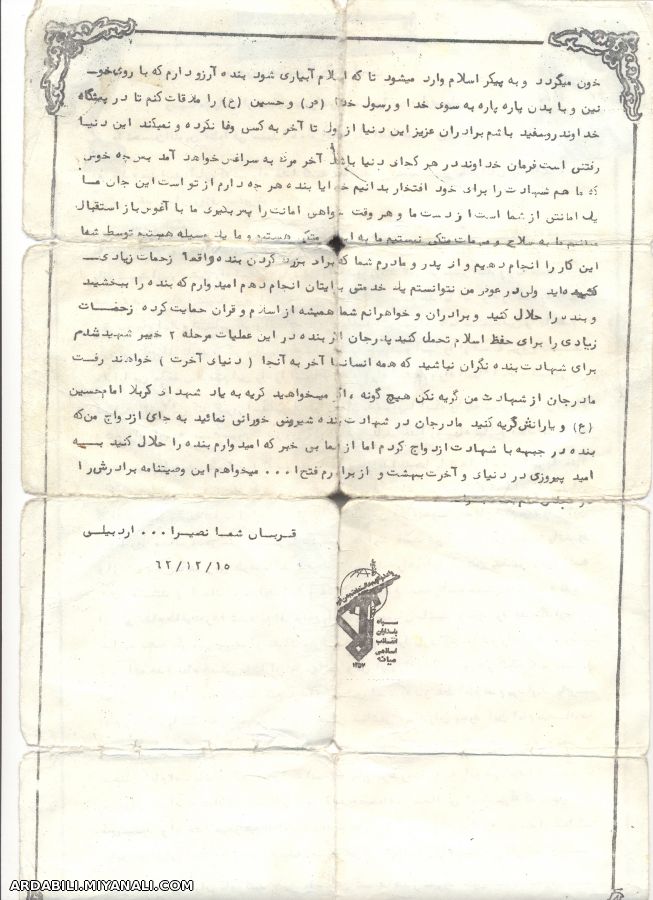 خون میگردد و به پیکر اسلام وارد میشود تا که اسلام آبیاری شود بنده آرزو دارم که با روی خو‌ــ
نین و با بدن پاره پاره به سوی خدا و رسول خدا (ص) و حسین (ع) را ملاقات کنم تا در پیشگاه
خداوند روسفید باشم برادران عزیز این دنیا از اول تا آخر به کسی وفا نکرده و نمیکند این دنیا
رفتنی است فرمان خداوند در هر کجای دنیا باشد آخر مرگ به سراغش خواهد آمد پس چه خوش
که ما هم شهادت را برای خود افتخار بدانیم خدایا بنده هر چه دارم از تو است این جان ما
یک امانتی از شما است از دست ما و هر وقت خواهی امانت را پس بگیری ما با آغوش باز استقبال
میکنیم ما به سلاح و مهمات متکی نیستیم ما به متکی هستیم و ما یک وسیله هستیم توسط شما
این کار را انجام دهیم و از پدر و مادرم شما که برای بزرگ کردن بنده واقعا زحمات زیادی
کشیده‌اید ولی در عوض من نتوانستم یک خدمتی برایتان انجام دهم امیدوارم که بنده را ببخشید
و بنده را حلال کنید و برادران و خواهرانم شما همیشه از اسلام و قران حمایت کرده زحمات
زیادی را برای حفظ اسلام تحمل کنید پدرجان اگر بنده در این عملیات مرحله ۲ خیبر شهید شدم
برای شهادت بنده نگران نباشید که همه انسانها آخر به آنجا ( دنیای آخرت ) خواهند رفت
مادرجان از شهادت من گریه نکن هیچ گونه ، اگر میخواهید گریه به یاد شهدای کربلا امام حسین
(ع) و یارانش گریه کنید مادرجان در شهادت بنده شیرینی خورانی نمائید به جای ازدواج من که
بنده در جبهه با شهادت ازدواج کردم اما از شما بی خبر که امیدوارم بنده را حلال کنید بـــه
امید پیروزی در دنیای و آخرت بهشت و از برادرم فتح ا . . . میخواهم این وصیتنامه برادرش را
قربان شما نصیرا . . . اردبیلی
٦٢/١٢/١٥
سپاه
پاسداران
انقلاب
اسلامی
میانه
۱۳۵۷
ARDABILI.MIYANALI.COM